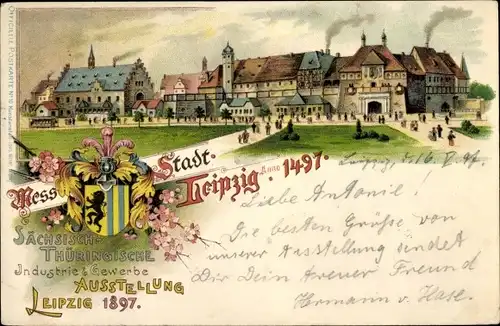 OFFICIELLE POSTKARTE No
Mess Stadt.
Leipzig Anno 1497.
Leipzig, d. 16. V. 97.
Liebe Antonie!
Die besten Grüße von
unserer Ausstellung sendet
Dir Dein treuer Freund
Hermann v. Hase.
SÄCHSISCH-
THÜRINGISCHE
Industrie & Gewerbe
AUSSTELLUNG
LEIPZIG 1897.